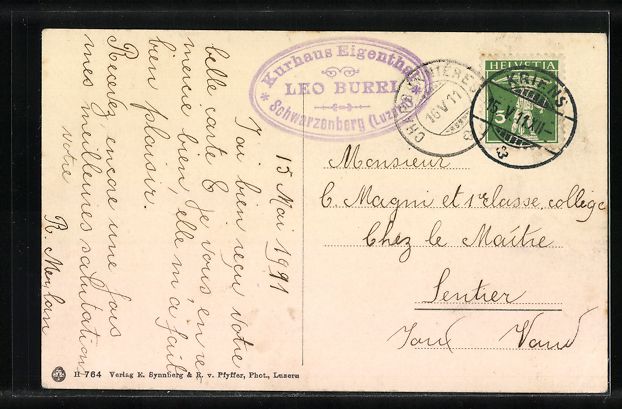 Kurhaus Eigenthal
LEO BURRI
* Schwarzenberg (Luzern) *
16.V.11
HELVETIA
5
KRIENS
15.V.11
15 Mai 1911
J'ai bien reçu votre
belle carte & je vous en re-
mercie bien, elle m'a fait
bien plaisir.
Recevez encore une fois
mes meilleures salutations
votre
R. Meylan
Monsieur
C. Magni et 1re classe, collège
Chez le Maître
Sentier
Vaud
H 764 Verlag E. Synnberg & R. v. Pfyffer, Phot., Luzern